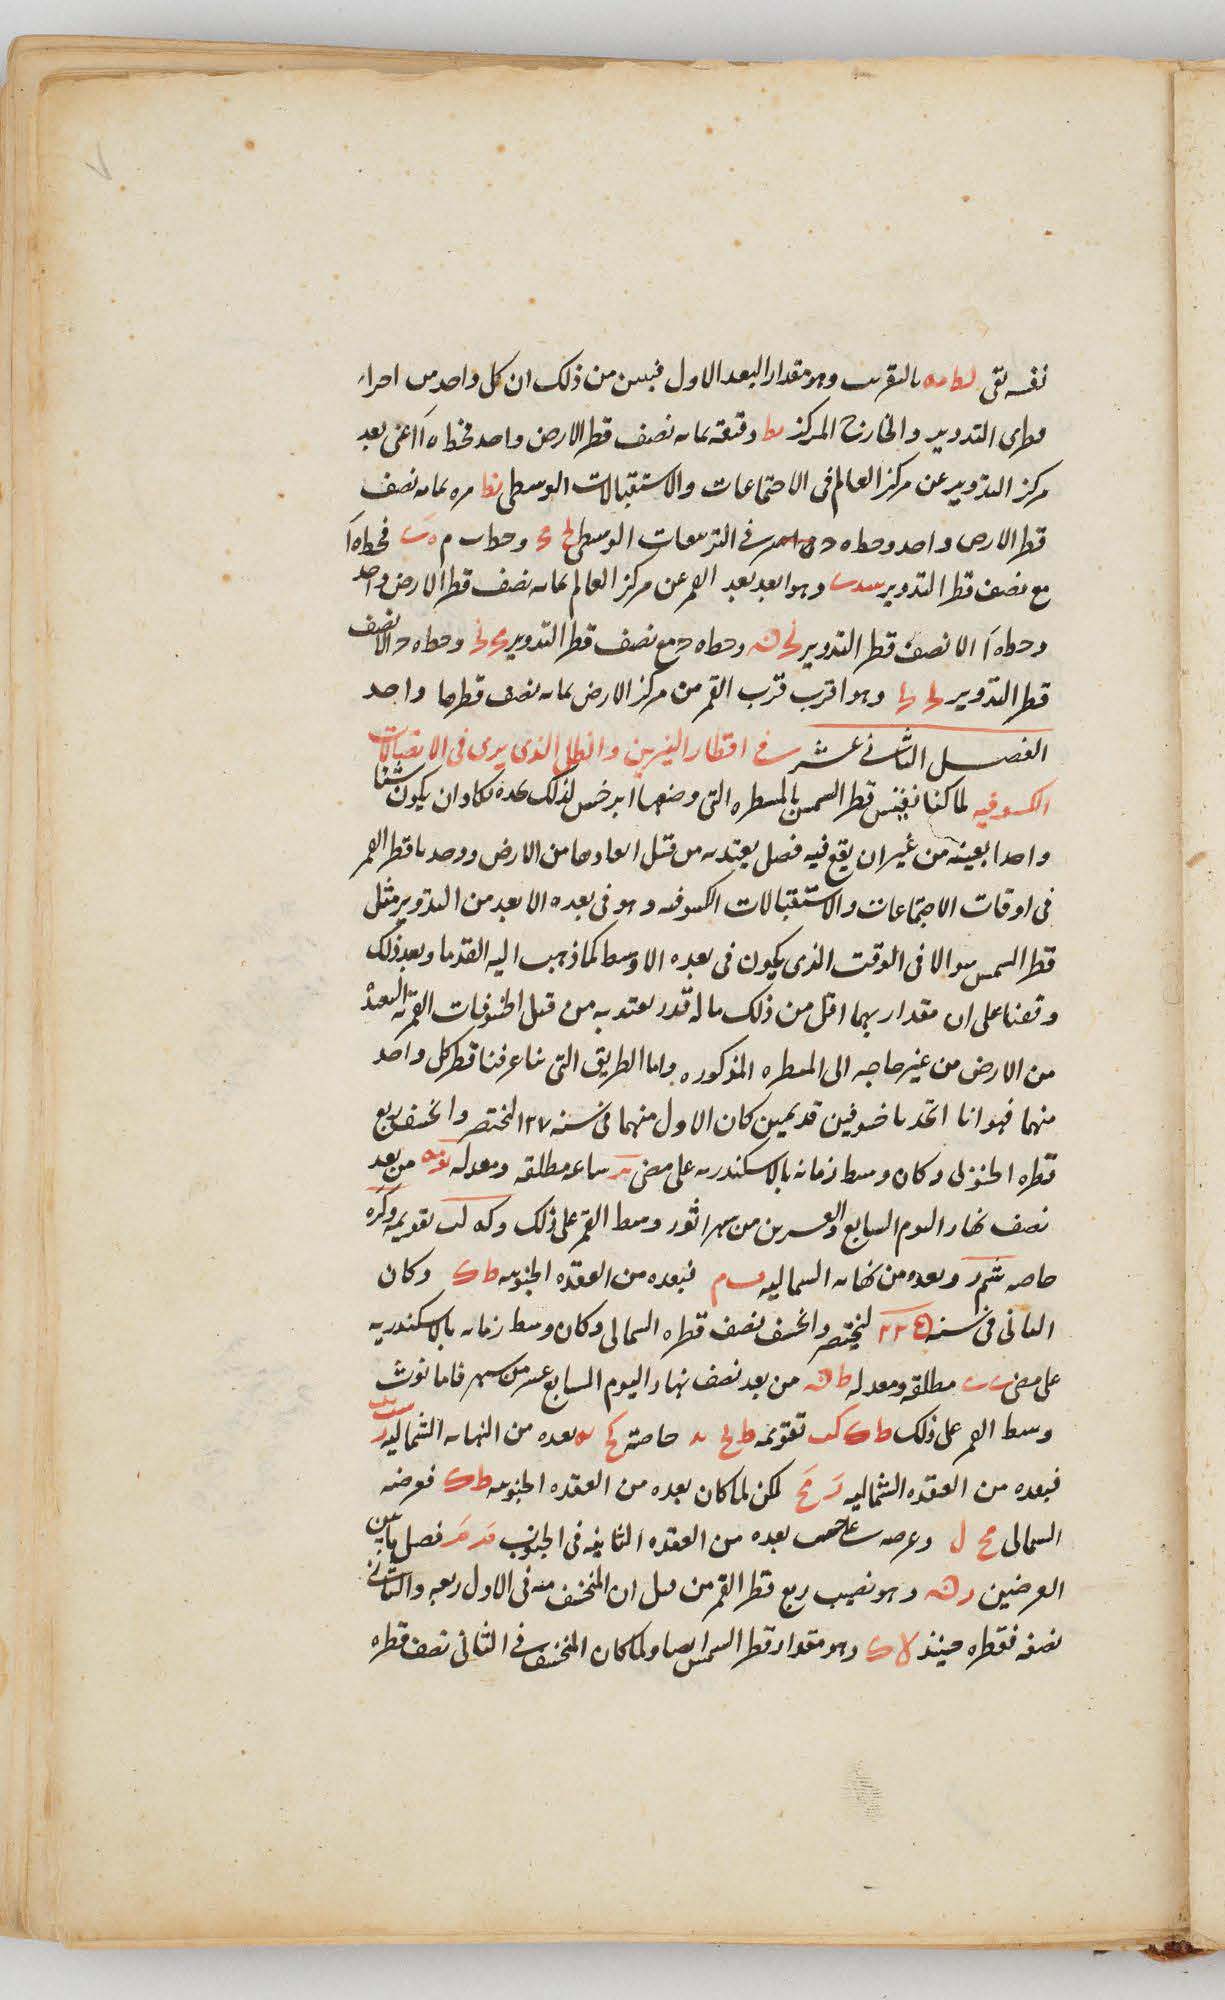 نفسه تقى لط مه بالتقريب وهو مقدار البعد الاول فبين من ذلك ان كل واحد من اجزاء
قطرى التدوير والخارج المركز نط دقيقة بما به نصف قطر الارض واحد فخط ه ا اعنى بعد
مركز التدوير عن مركز العالم فى الاجتماعات والاستقبالات الوسطى نط مره بما به نصف
قطر الارض واحد وخط ه فى التربيعات الوسطى لح مح وخط ب م ه ى فخط ه ا
مع نصف قطر التدوير سد ى وهو ابعد بعد القمر عن مركز العالم بما به نصف قطر الارض واحد
وخط ه ا الا نصف قطر التدوير نح ن وخط ه ح مع نصف قطر التدوير مح نح وخط ه ح الا نصف
قطر التدوير لح لح وهو اقرب قرب القمر من مركز الارض بما به نصف قطرها واحد
الفصل الثانى عشر فى اقطار النيرين والظل الذى يرى فى الاتصالات
الكسوفيه لما كنا نقيس قطر الشمس بالمسطره التى وضعها ابرخس لذلك نجده يكاد ان يكون شيئا
واحدا بعينه من غير ان يقع فيه فصل يعتد به من قبل ابعادها من الارض ووجدنا قطر القمر
فى اوقات الاجتماعات والاستقبالات الكسوفيه وهو فى بعده الابعد من التدوير مثل
قطر الشمس سوا لا فى الوقت الذى يكون فى بعده الاوسط كما ذهب اليه القدما وبعد ذلك
وقفنا على ان مقداريهما اقل من ذلك ما له قدر يعتد به من قبل الخسوفات القمرية البعد
من الارض من غير حاجه الى المسطره المذكوره واما الطريق التى بنا عرفنا قطر كل واحد
منهما فهو انا اتخذنا خسوفين قديمين كان الاول منهما فى سنه ١٢٧ لبختنصر وانخسف ربع
قطره الجنوبى وكان وسط زمانه بالاسكندريه على مضى ساعه مطلقه ومعدله من بعد
نصف نهار اليوم السابع والعشرين من شهر اثور وسط القمر على ذلك وكه لب تقويمه وكزه
خاصه شم ز وبعده من نهايه الشماليه ف م فبعده من العقده الجنوبيه ط ك وكان
الثانى فى سنه ٢٢٥ لبختنصر وانخسف نصف قطره الشمالى وكان وسط زمانه بالاسكندريه
على مضى ى ى مطلقه ومعدله ط ن من بعد نصف نهار اليوم السابع عشر من شهر فامانوث
وسط القمر على ذلك ط ك كب تقويمه ط لح خاصته كح بعده من النهايه الشماليه
فبعده من العقده الشماليه ز مح لكن لما كان بعده من العقده الجنوبيه ط ك فعرضه
الشمالى مح ل وعرضه على بعده من العقده الثانيه فى الجنوب فصل ما بين
العرضين ز ن وهو نصيب ربع قطر القمر من قبل ان المنخسف منه فى الاول ربعه والثانى
نصفه فقطره حينئذ لا ك وهو مقدار قطر الشمس ايضا ولما كان المنخسف فى الثانى نصف قطره